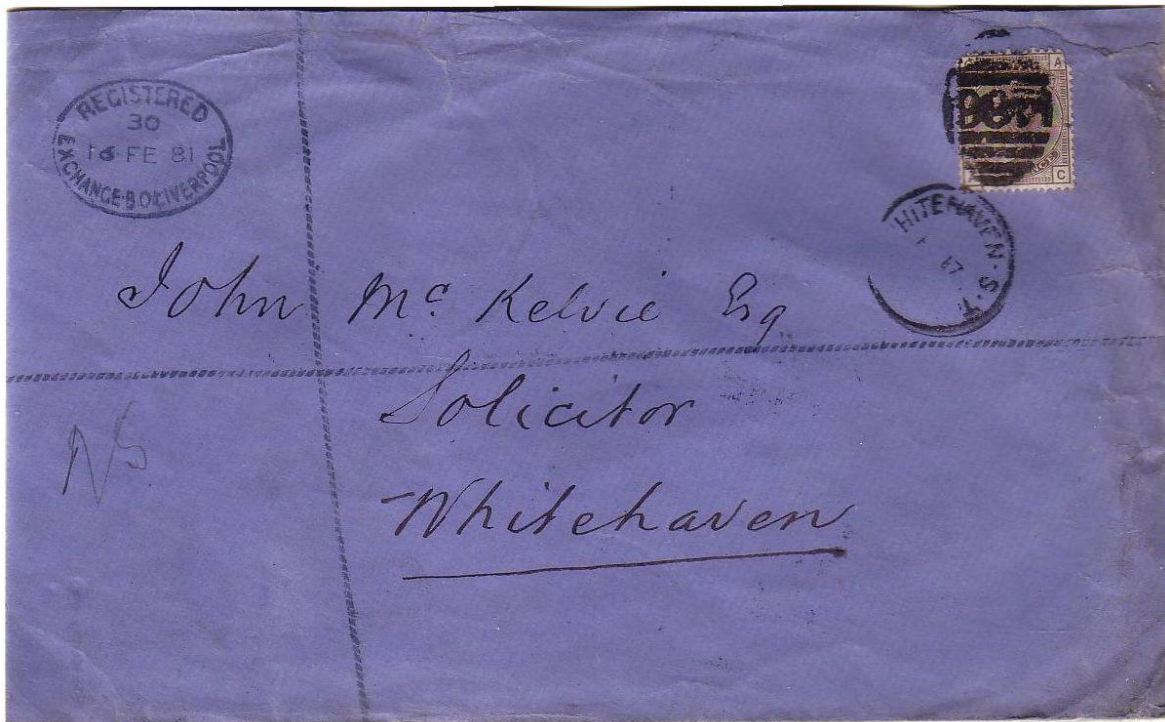 REGISTERED
30
16 FE 81
EXCHANGE B.O. LIVERPOOL
A
C
HITEHAVEN · S.T.
17
John Mc Kelvie Esq
Solicitor
Whitehaven